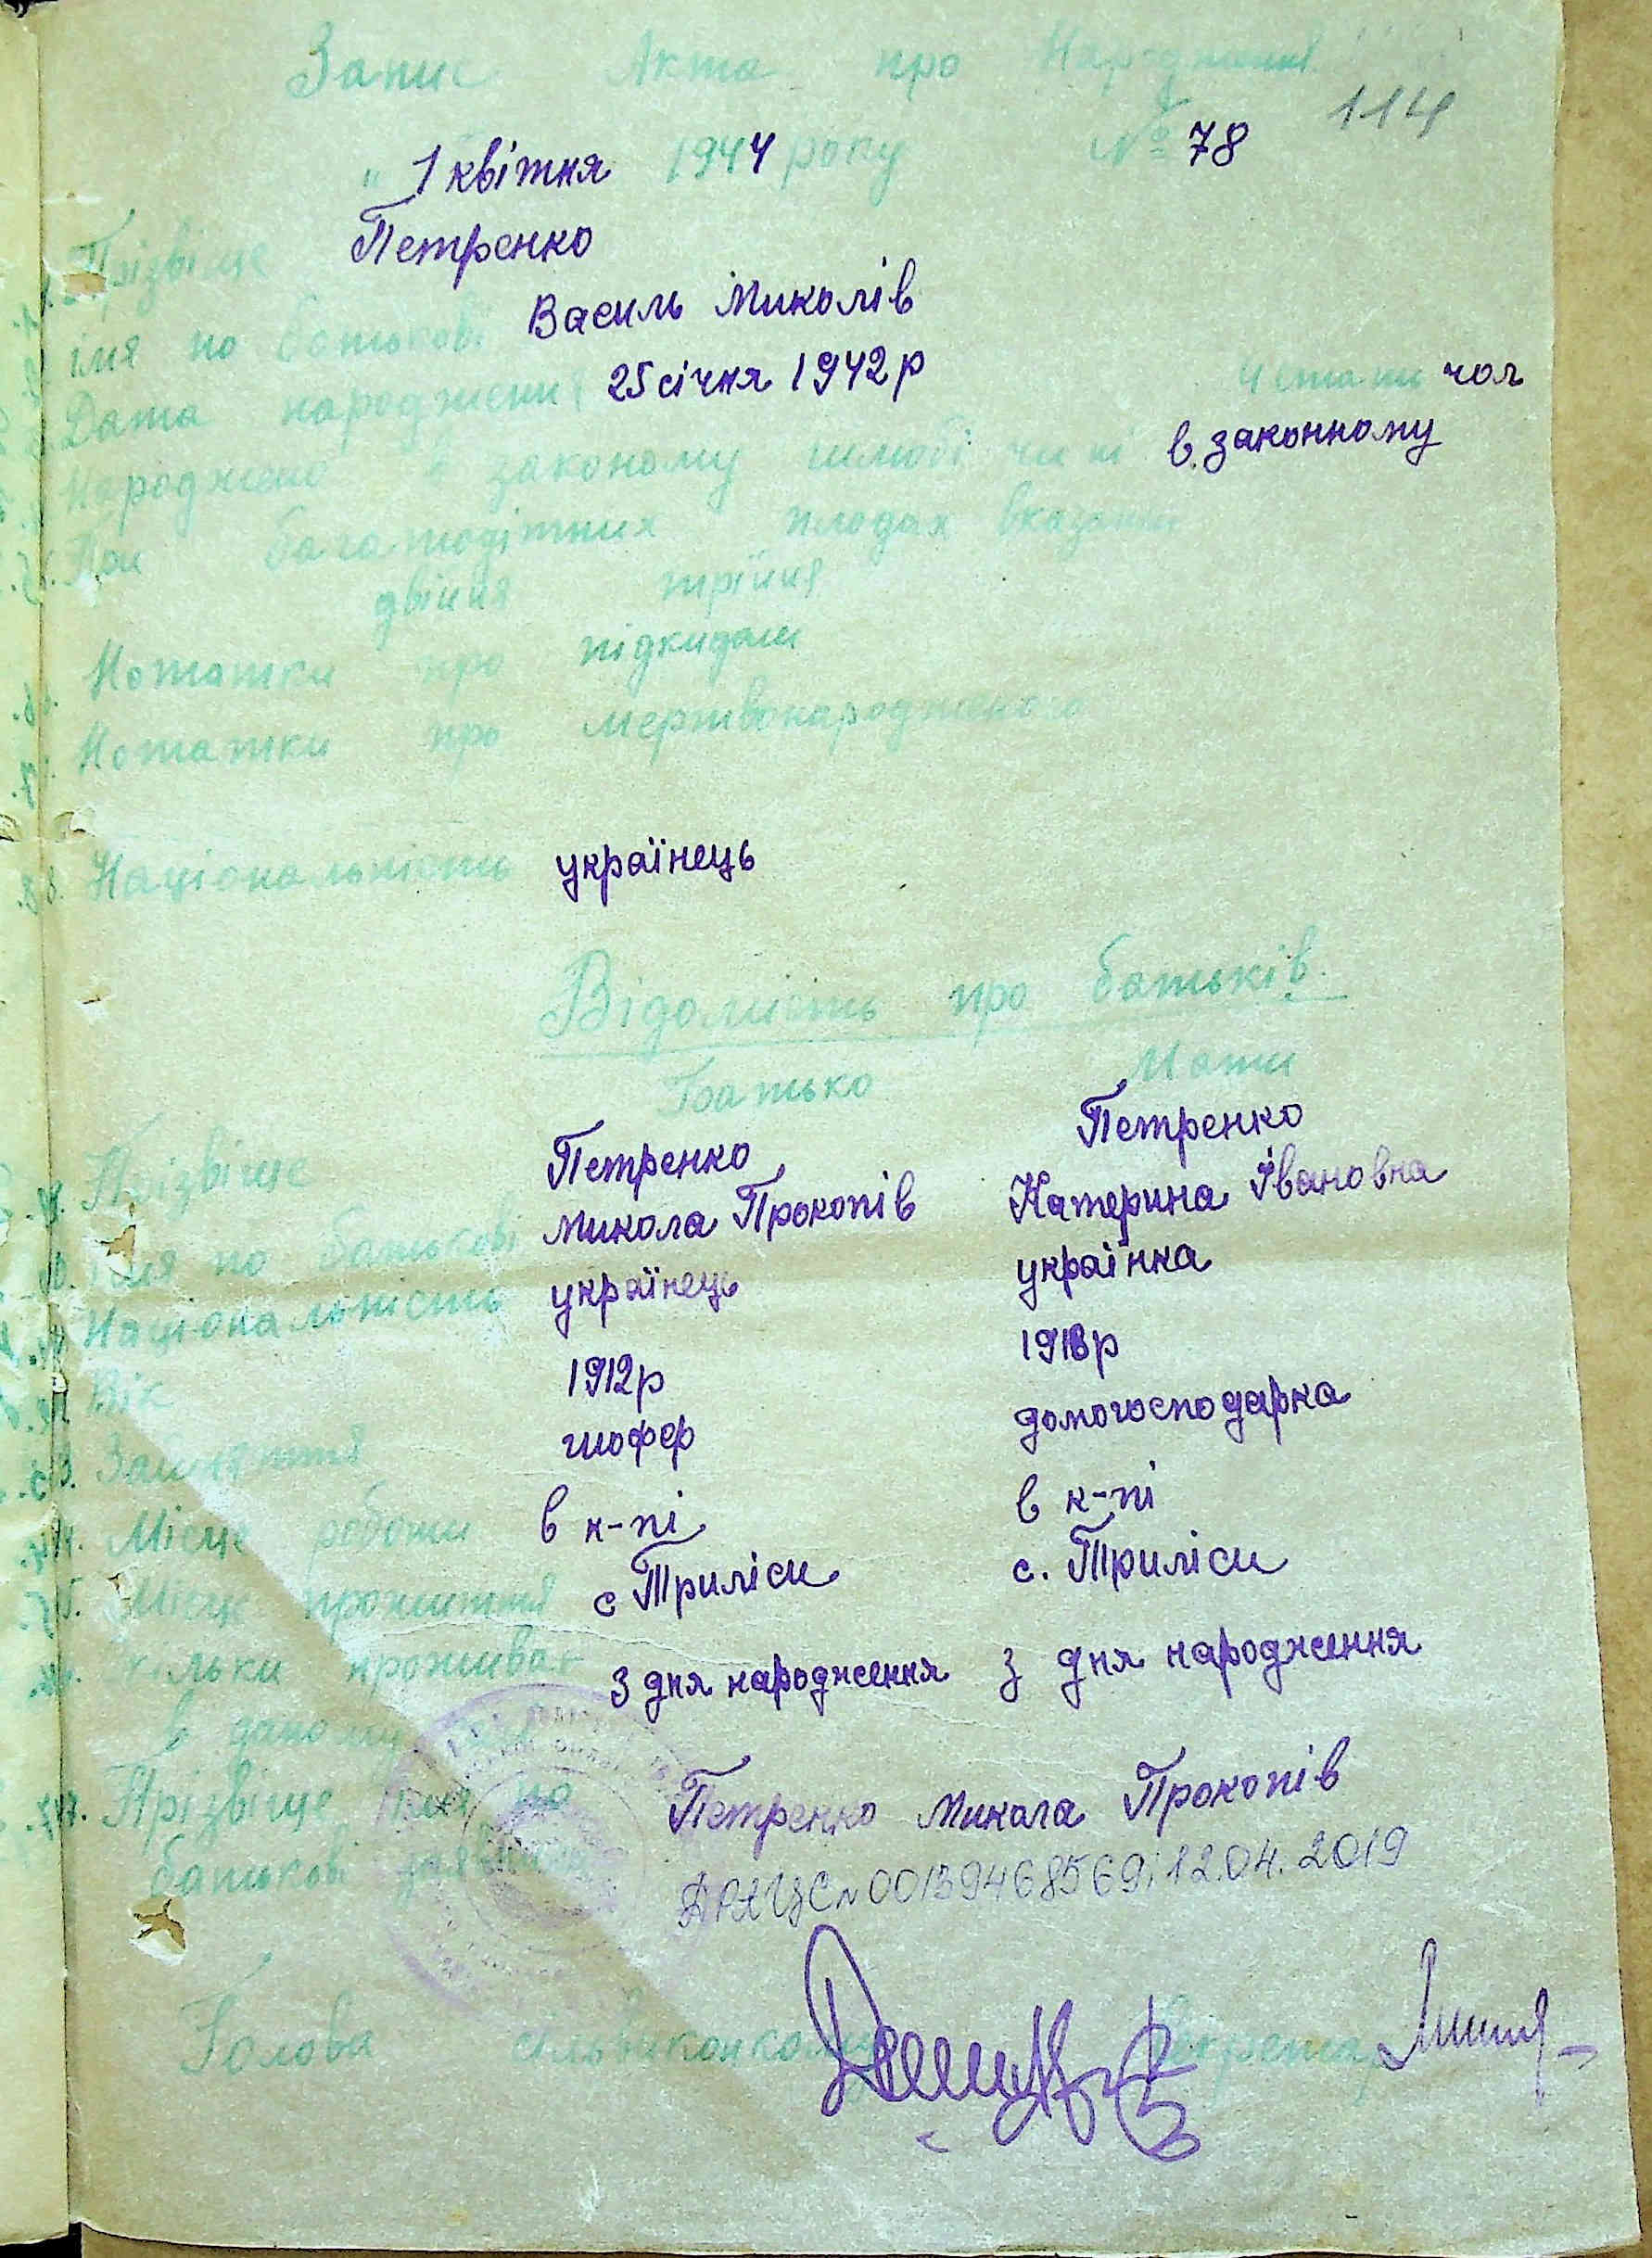 Запис Акта про Народження
114
" 1 квітня 1944 року № 78
1. Прізвіще Петренко
імя по батькові Василь Миколів
Дата народження 25 січня 1942 р чол
Народжено в законому шлюбі чи ні в законному
5. При багатодітних плодах вказати
двійня трійня
6. Нотатки про підкидаш
7. Нотатки про мертвонародженого
8. Національність українець
Відомість про батьків.
Батько Мати
Прізвіще Петренко Петренко
10. Імя по батькові Микола Прокопів Катерина Івановна
Національність українець українка
Вік 1912р 1918р
13. Заняття шофер домогосподарка
14. Місце роботи в к-пі в к-пі
15. Місце прожиття с Триліси с. Триліси
Скільки прожива з дня народження з дня народження
в даному
17. Прізвіще імя по Петренко Микола Прокопів
батькові
ДРАЦС № 00139468569; 12.04.2019
Голова сільвиконкому Секретар